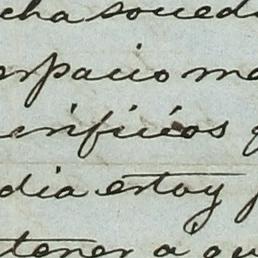 cha socied
espacio ma
crificios
dia estoy
tener a qu